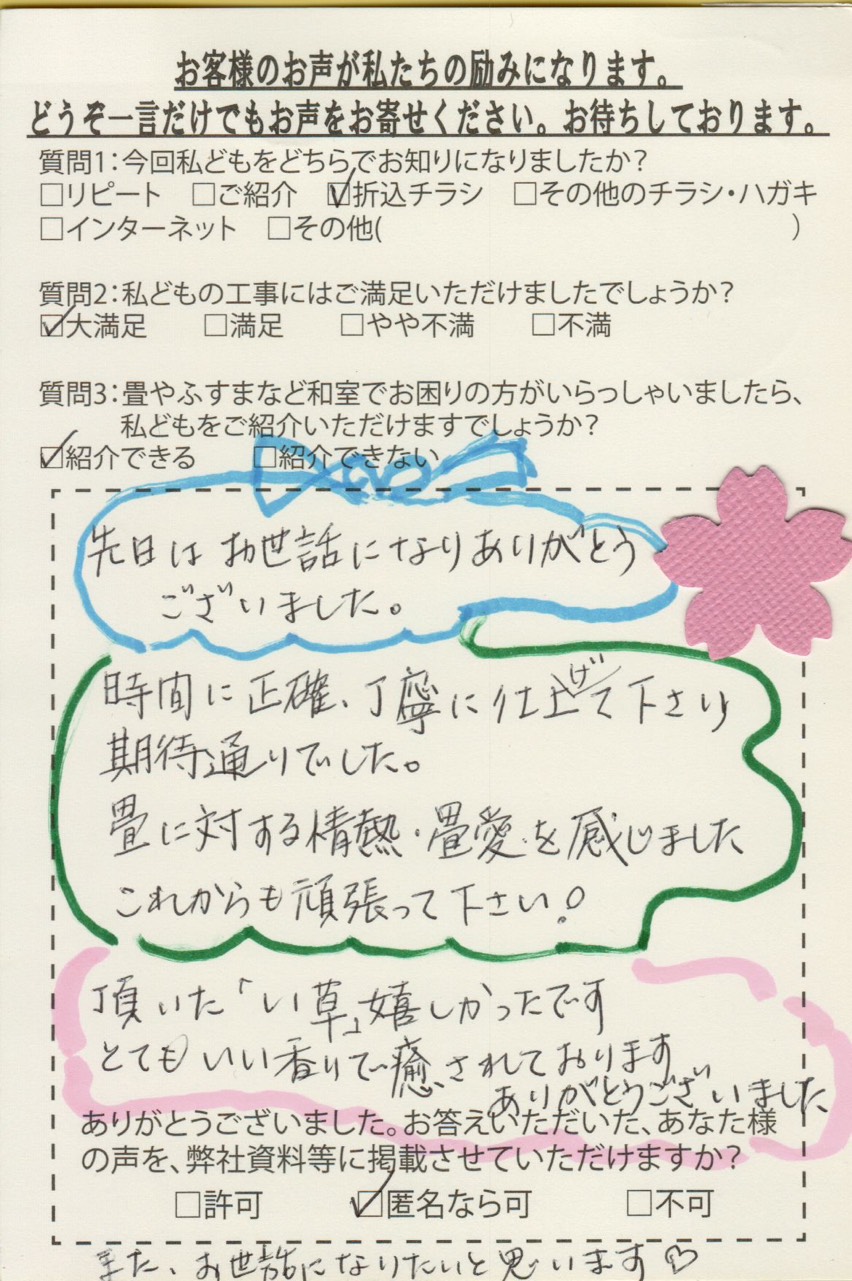 お客様のお声が私たちの励みになります。
どうぞ一言だけでもお声をお寄せください。お待ちしております。
質問1:今回私どもをどちらでお知りになりましたか?
□リピート □ご紹介 ☑折込チラシ □その他のチラシ・ハガキ
□インターネット □その他( )
質問2:私どもの工事にはご満足いただけましたでしょうか?
☑大満足 □満足 □やや不満 □不満
質問3:畳やふすまなど和室でお困りの方がいらっしゃいましたら、
私どもをご紹介いただけますでしょうか?
☑紹介できる □紹介できない
先日はお世話になりありがとう
ございました。
時間に正確、丁寧に仕上げて下さり
期待通りでした。
畳に対する情熱・畳愛を感じました
これからも頑張って下さい!
頂いた「い草」嬉しかったです
とてもいい香りで癒されております
ありがとうございました
ありがとうございました。お答えいただいた、あなた様
の声を、弊社資料等に掲載させていただけますか?
□許可 ☑匿名なら可 □不可
また、お世話になりたいと思います♡